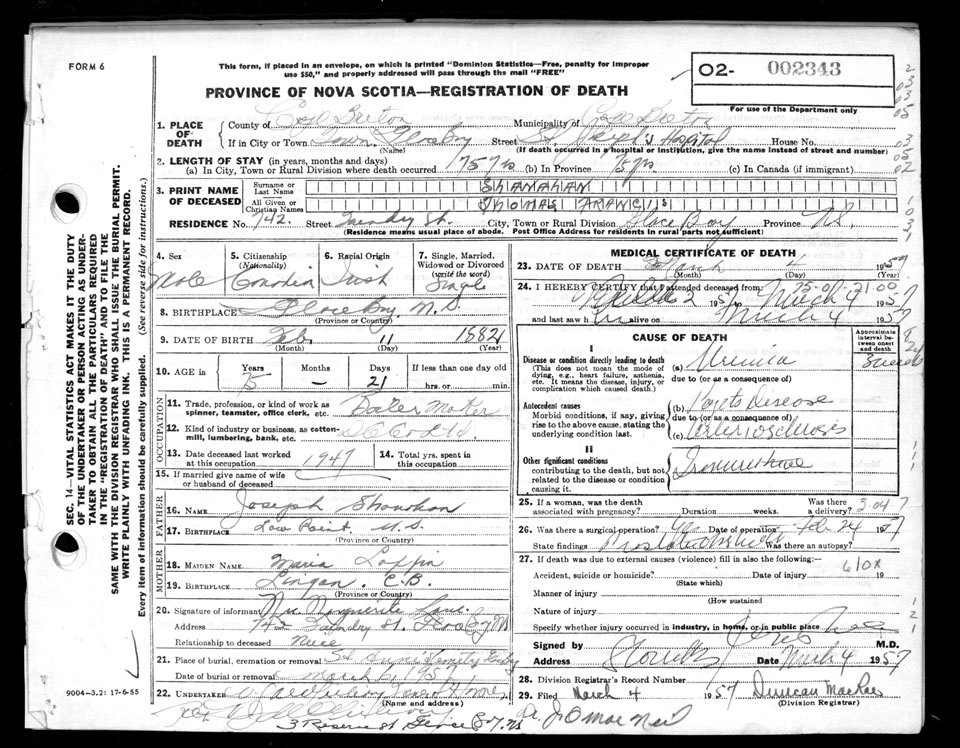 FORM 6
This form, if placed in an envelope, on which is printed "Dominion Statistics—Free, penalty for improper
use $50," and properly addressed will pass through the mail "FREE"
PROVINCE OF NOVA SCOTIA—REGISTRATION OF DEATH
02- 002343
For use of the Department only
1. PLACE OF DEATH
County of Cape Breton Municipality of Cape Breton
If in City or Town Town Glace Bay Street St. Joseph's Hospital House No.
(Name) (If death occurred in a hospital or institution, give the name instead of street and number)
2. LENGTH OF STAY (in years, months and days)
(a) In City, Town or Rural Division where death occurred 75 yrs (b) In Province 75 yrs (c) In Canada (if immigrant)
3. PRINT NAME OF DECEASED
Surname or Last Name SHANAHAN
All Given or Christian Names THOMAS FRANCIS
RESIDENCE No. 742 Street Foundry St. City, Town or Rural Division Glace Bay Province N.S.
(Residence means usual place of abode. Post Office Address for residents in rural parts not sufficient)
4. Sex Male
5. Citizenship (Nationality) Canadian
6. Racial Origin Irish
7. Single, Married, Widowed or Divorced (write the word) Single
8. BIRTHPLACE Glace Bay, N.S.
(Province or Country)
9. DATE OF BIRTH Feb 11 1882
(Month) (Day) (Year)
10. AGE in Years 75 Months — Days 21 If less than one day old hrs. or min.
OCCUPATION
11. Trade, profession, or kind of work as spinner, teamster, office clerk, etc. Boiler Maker
12. Kind of industry or business, as cotton-mill, lumbering, bank, etc.
13. Date deceased last worked at this occupation 1947
14. Total yrs. spent in this occupation
15. If married give name of wife or husband of deceased
FATHER
16. NAME Joseph Shanahan
17. BIRTHPLACE Low Point N.S.
(Province or Country)
MOTHER
18. MAIDEN NAME Maria Laffin
19. BIRTHPLACE Lingan, C.B.
(Province or Country)
20. Signature of informant Mrs. Marguerite Lane
Address 742 Foundry St. Glace Bay NS
Relationship to deceased Neice
21. Place of burial, cremation or removal St Anne's Cemetery
Date of burial or removal March 6, 1957
22. UNDERTAKER
(Name and address)
3 Reserve St Glace Bay. NS
MEDICAL CERTIFICATE OF DEATH
23. DATE OF DEATH March 4 1957
(Month) (Day) (Year)
75-01-21-00
24. I HEREBY CERTIFY that I attended deceased from: 1957 to March 4 1957
and last saw h im alive on March 4 1957
CAUSE OF DEATH
Approximate interval between onset and death
I
Disease or condition directly leading to death
(This does not mean the mode of dying, e.g., heart failure, asthenia, etc. It means the disease, injury, or complication which caused death.)
(a) Uremia
due to (or as a consequence of)
Antecedent causes
Morbid conditions, if any, giving rise to the above cause, stating the underlying condition last.
(b) Pagets Disease
due to (or as a consequence of)
(c) Arteriosclerosis
II
Other significant conditions
contributing to the death, but not related to the disease or condition causing it.
25. If a woman, was the death associated with pregnancy? Duration weeks. Was there a delivery?
26. Was there a surgical operation? Yes Date of operation Feb 24 1957
State findings Was there an autopsy?
27. If death was due to external causes (violence) fill in also the following:
610X
Accident, suicide or homicide? Date of injury 19
(State which)
Manner of injury
(How sustained
Nature of injury
Specify whether injury occurred in industry, in home, or in public place
Signed by M.D.
Address Date March 4 1957
28. Division Registrar's Record Number
29. Filed March 4 1957 Duncan MacRae
(Division Registrar)
SEC. 14—VITAL STATISTICS ACT MAKES IT THE DUTY
OF THE UNDERTAKER OR PERSON ACTING AS UNDER-
TAKER TO OBTAIN ALL THE PARTICULARS REQUIRED
IN THE "REGISTRATION OF DEATH" AND TO FILE THE
SAME WITH THE DIVISION REGISTRAR WHO SHALL ISSUE THE BURIAL PERMIT.
WRITE PLAINLY WITH UNFADING INK. THIS IS A PERMANENT RECORD.
Every item of information should be carefully supplied. (See reverse side for instructions.)
9004—3.2: 17-6-55